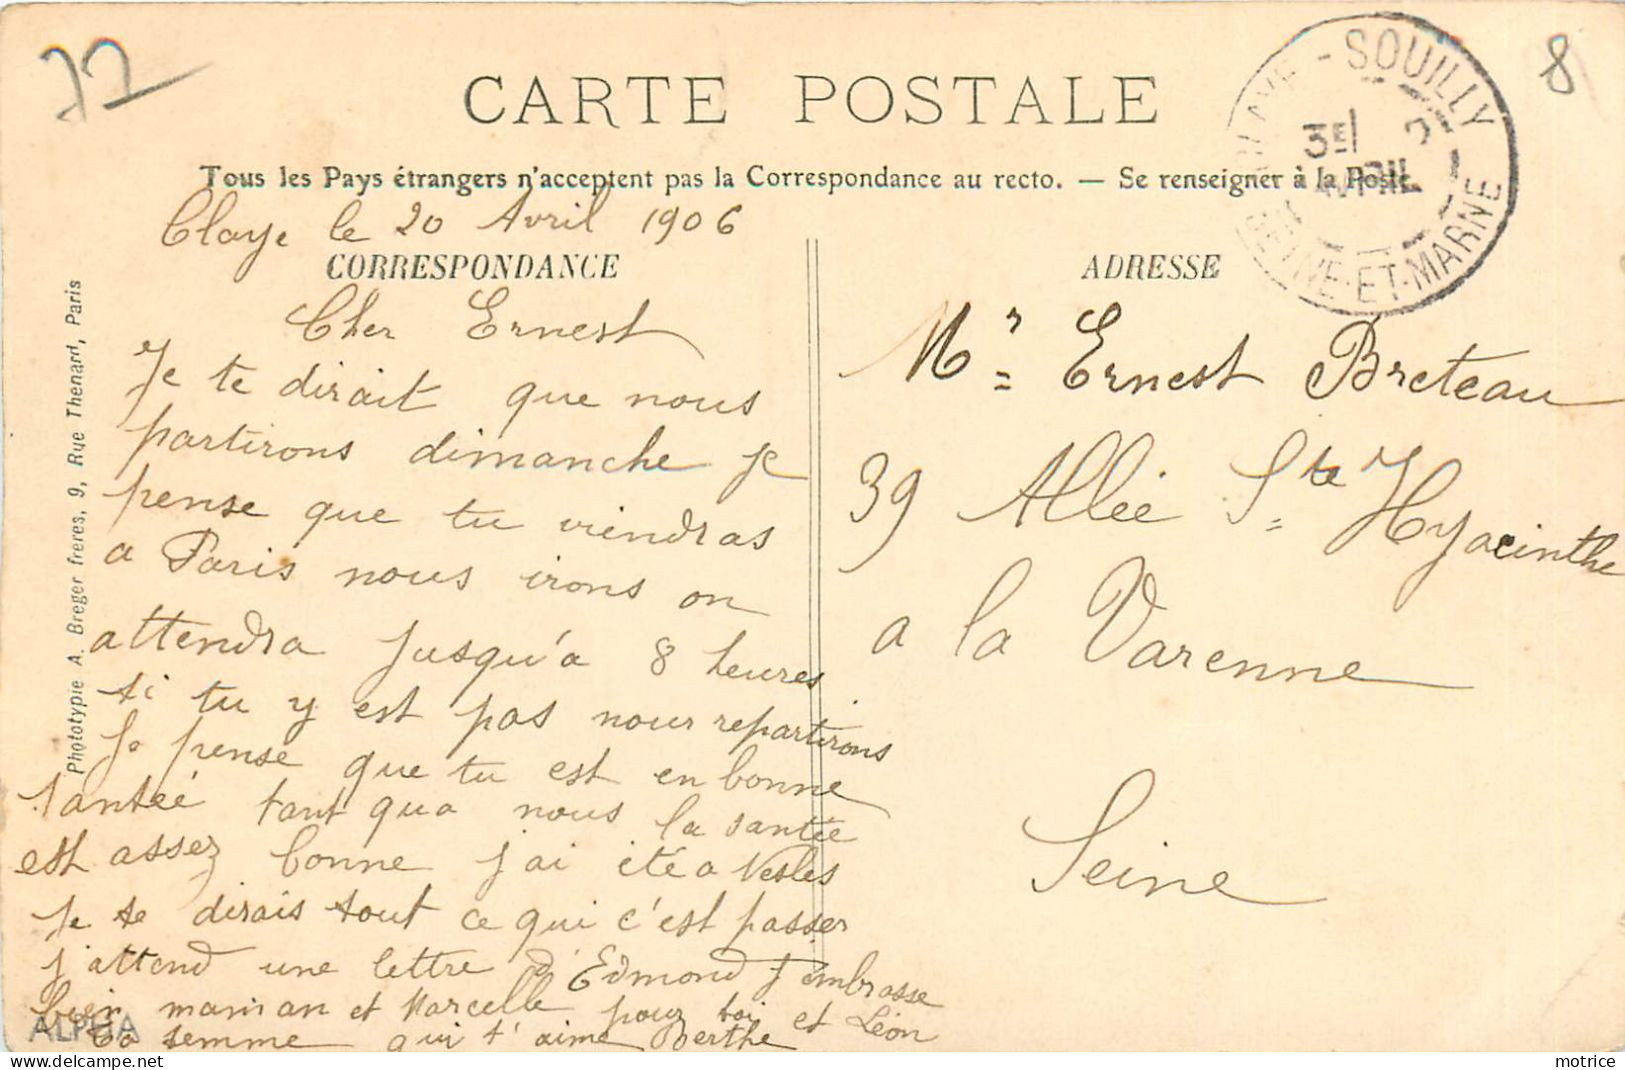 72
8
CARTE POSTALE
Tous les Pays étrangers n'acceptent pas la Correspondance au recto. — Se renseigner à la Poste.
CLAYE - SOUILLY
3E
AVRIL
SEINE-ET-MARNE
Claye le 20 Avril 1906
CORRESPONDANCE
Cher Ernest
Je te dirait que nous
partirons dimanche je
pense que tu viendras
a Paris nous irons on
attendra jusqu'a 8 heures
si tu y est pas nous repartirons
Je pense que tu est en bonne
santée tant qua nous la santée
est assez bonne j'ai été a Nesles
Je te dirais tout ce qui c'est passer
j'attend une lettre d'Edmond J'embrasse
bien maman et Marcelle pour toi et Léon
ta femme qui t'aime Berthe
ADRESSE
Mr Ernest Breteau
39 Allée Ste Hyacinthe
a la Varenne
Seine
Phototypie A. Breger frères, 9, Rue Thenard, Paris
ALPHA
motrice